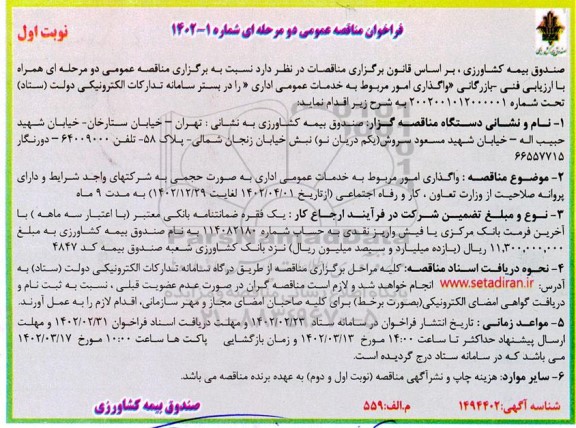 فراخوان مناقصه عمومی دو مرحله ای شماره ۱-۱۴۰۲
نوبت اول
صندوق بیمه کشاورزی ، بر اساس قانون برگزاری مناقصات در نظر دارد نسبت به برگزاری مناقصه عمومی دو مرحله ای همراه
با ارزیابی فنی -بازرگانی «واگذاری امور مربوط به خدمات عمومی اداری » را در بستر سامانه تدارکات الکترونیکی دولت (ستاد)
تحت شماره ۲۰۰۲۰۰۱۰۱۲۰۰۰۰۰۱ به شرح زیر اقدام نماید:
۱- نام و نشانی دستگاه مناقصه گزار: صندوق بیمه کشاورزی به نشانی : تهران – خیابان ستارخان- خیابان شهید
حبیب اله – خیابان شهید مسعود سروش(یکم دریان نو) نبش خیابان زنجان شمالی- پلاک ۵۸- تلفن ۶۴۰۰۹۰۰۰ – دورنگار
۶۶۵۵۷۷۱۵
۲- موضوع مناقصه : واگذاری امور مربوط به خدمات عمومی اداری به صورت حجمی به شرکتهای واجد شرایط و دارای
پروانه صلاحیت از وزارت تعاون ، کار و رفاه اجتماعی (ازتاریخ ۱۴۰۲/۰۴/۰۱ لغایت ۱۴۰۲/۱۲/۲۹) به مدت ۹ ماه
۳- نوع و مبلغ تضمین شرکت در فرآیند ارجاع کار : یک فقره ضمانتنامه بانکی معتبر (با اعتبار سه ماهه ) با
آخرین فرمت بانک مرکزی یا فیش واریز نقدی به حساب شماره ۱۱۴۰۸۲۱۸۰ به نام صندوق بیمه کشاورزی به مبلغ
۱۱,۳۰۰,۰۰۰,۰۰۰ ریال (یازده میلیارد و سیصد میلیون ریال) نزد بانک کشاورزی شعبه صندوق بیمه کد ۴۸۴۷
۴- نحوه دریافت اسناد مناقصه: کلیه مراحل برگزاری مناقصه از طریق درگاه سامانه تدارکات الکترونیکی دولت (ستاد) به
آدرس: www.setadiran.ir انجام خواهد شد و لازم است مناقصه گران در صورت عدم عضویت قبلی ، نسبت به ثبت نام و
دریافت گواهی امضای الکترونیکی(بصورت برخط) برای کلیه صاحبان امضای مجاز و مهر سازمانی، اقدام لازم را به عمل آورند.
۵- مواعد زمانی : تاریخ انتشار فراخوان در سامانه ستاد ۱۴۰۲/۰۲/۲۳ و مهلت دریافت اسناد فراخوان ۱۴۰۲/۰۲/۳۱ و مهلت
ارسال پیشنهاد حداکثر تا ساعت ۱۴:۰۰ مورخ ۱۴۰۲/۰۳/۱۳ و زمان بازگشایی پاکت ها ساعت ۱۰:۰۰ مورخ ۱۴۰۲/۰۳/۱۷
می باشد که در سامانه ستاد درج گردیده است.
۶- سایر موارد: هزینه چاپ و نشرآگهی مناقصه (نوبت اول و دوم) به عهده برنده مناقصه می باشد.
شناسه آگهی: ۱۴۹۴۴۰۲
م.الف: ۵۵۹
صندوق بیمه کشاورزی